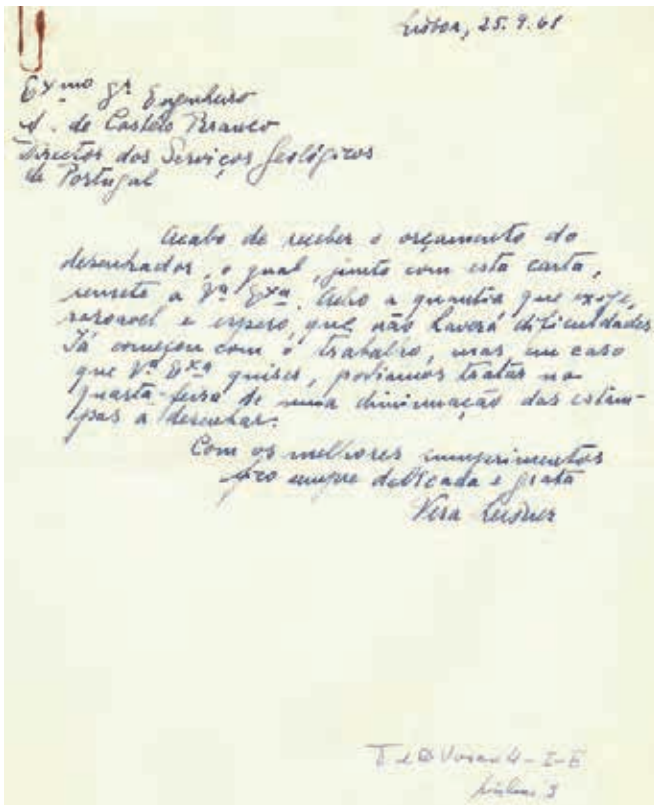 Lisboa, 25.9.68
Exmo Sr Engenheiro
A. de Castelo Branco
Director dos Serviços Geológicos
de Portugal
Acabo de receber o orçamento do
desenhador, o qual, junto com esta carta,
remeto a Vª Exª. Acho a quantia que exige,
rasoavel e espero, que não haverá dificuldades.
Já começou com o trabalho, mas em caso
que Vª Exª quiser, podiamos tratar na
quarta-feira de uma diminuação das estam-
pas a desenhar.
Com os melhores cumprimentos
fico sempre dedicada e grata
Vera Leisner